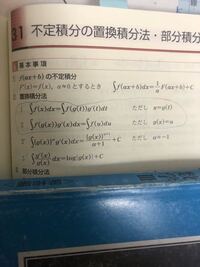 31 不定積分の置換積分法・部分積分
基本事項
1 f(ax+b) の不定積分
F'(x)=f(x), a≠0 とするとき ∫f(ax+b)dx=1/a F(ax+b)+C
2 置換積分法
1 ∫f(x)dx=∫f(g(t))g'(t)dt ただし x=g(t)
2 ∫f(g(x))g'(x)dx=∫f(u)du ただし g(x)=u
3 ∫{g(x)}^α g'(x)dx={g(x)}^(α+1)/(α+1)+C ただし α≠-1
4 ∫g'(x)/g(x) dx=log|g(x)|+C
3 部分積分法